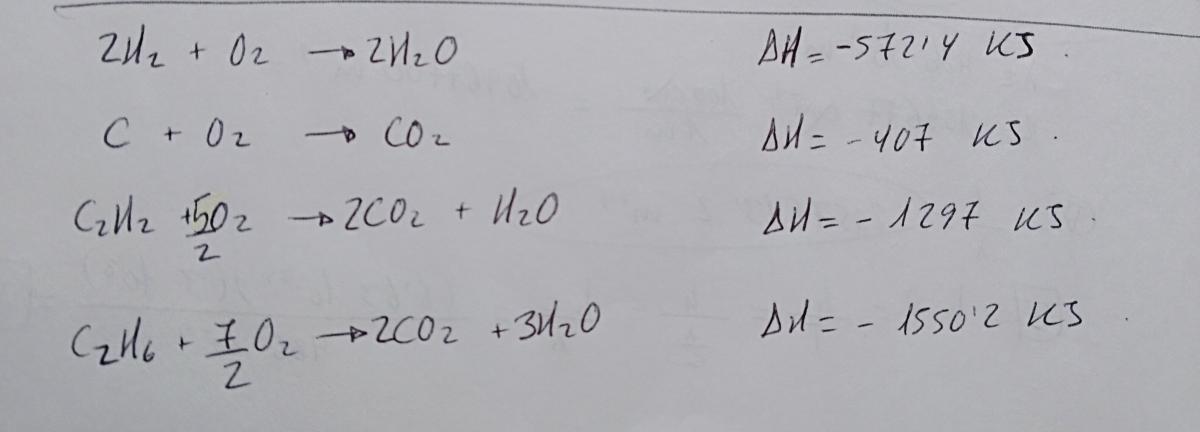 2H₂ + O₂ → 2H₂O ΔH = -572'4 KJ.
C + O₂ → CO₂ ΔH = -407 KJ.
C₂H₂ + 5/2 O₂ → 2CO₂ + H₂O ΔH = - 1297 KJ.
C₂H₆ + 7/2 O₂ → 2CO₂ + 3H₂O ΔH = - 1550'2 KJ.